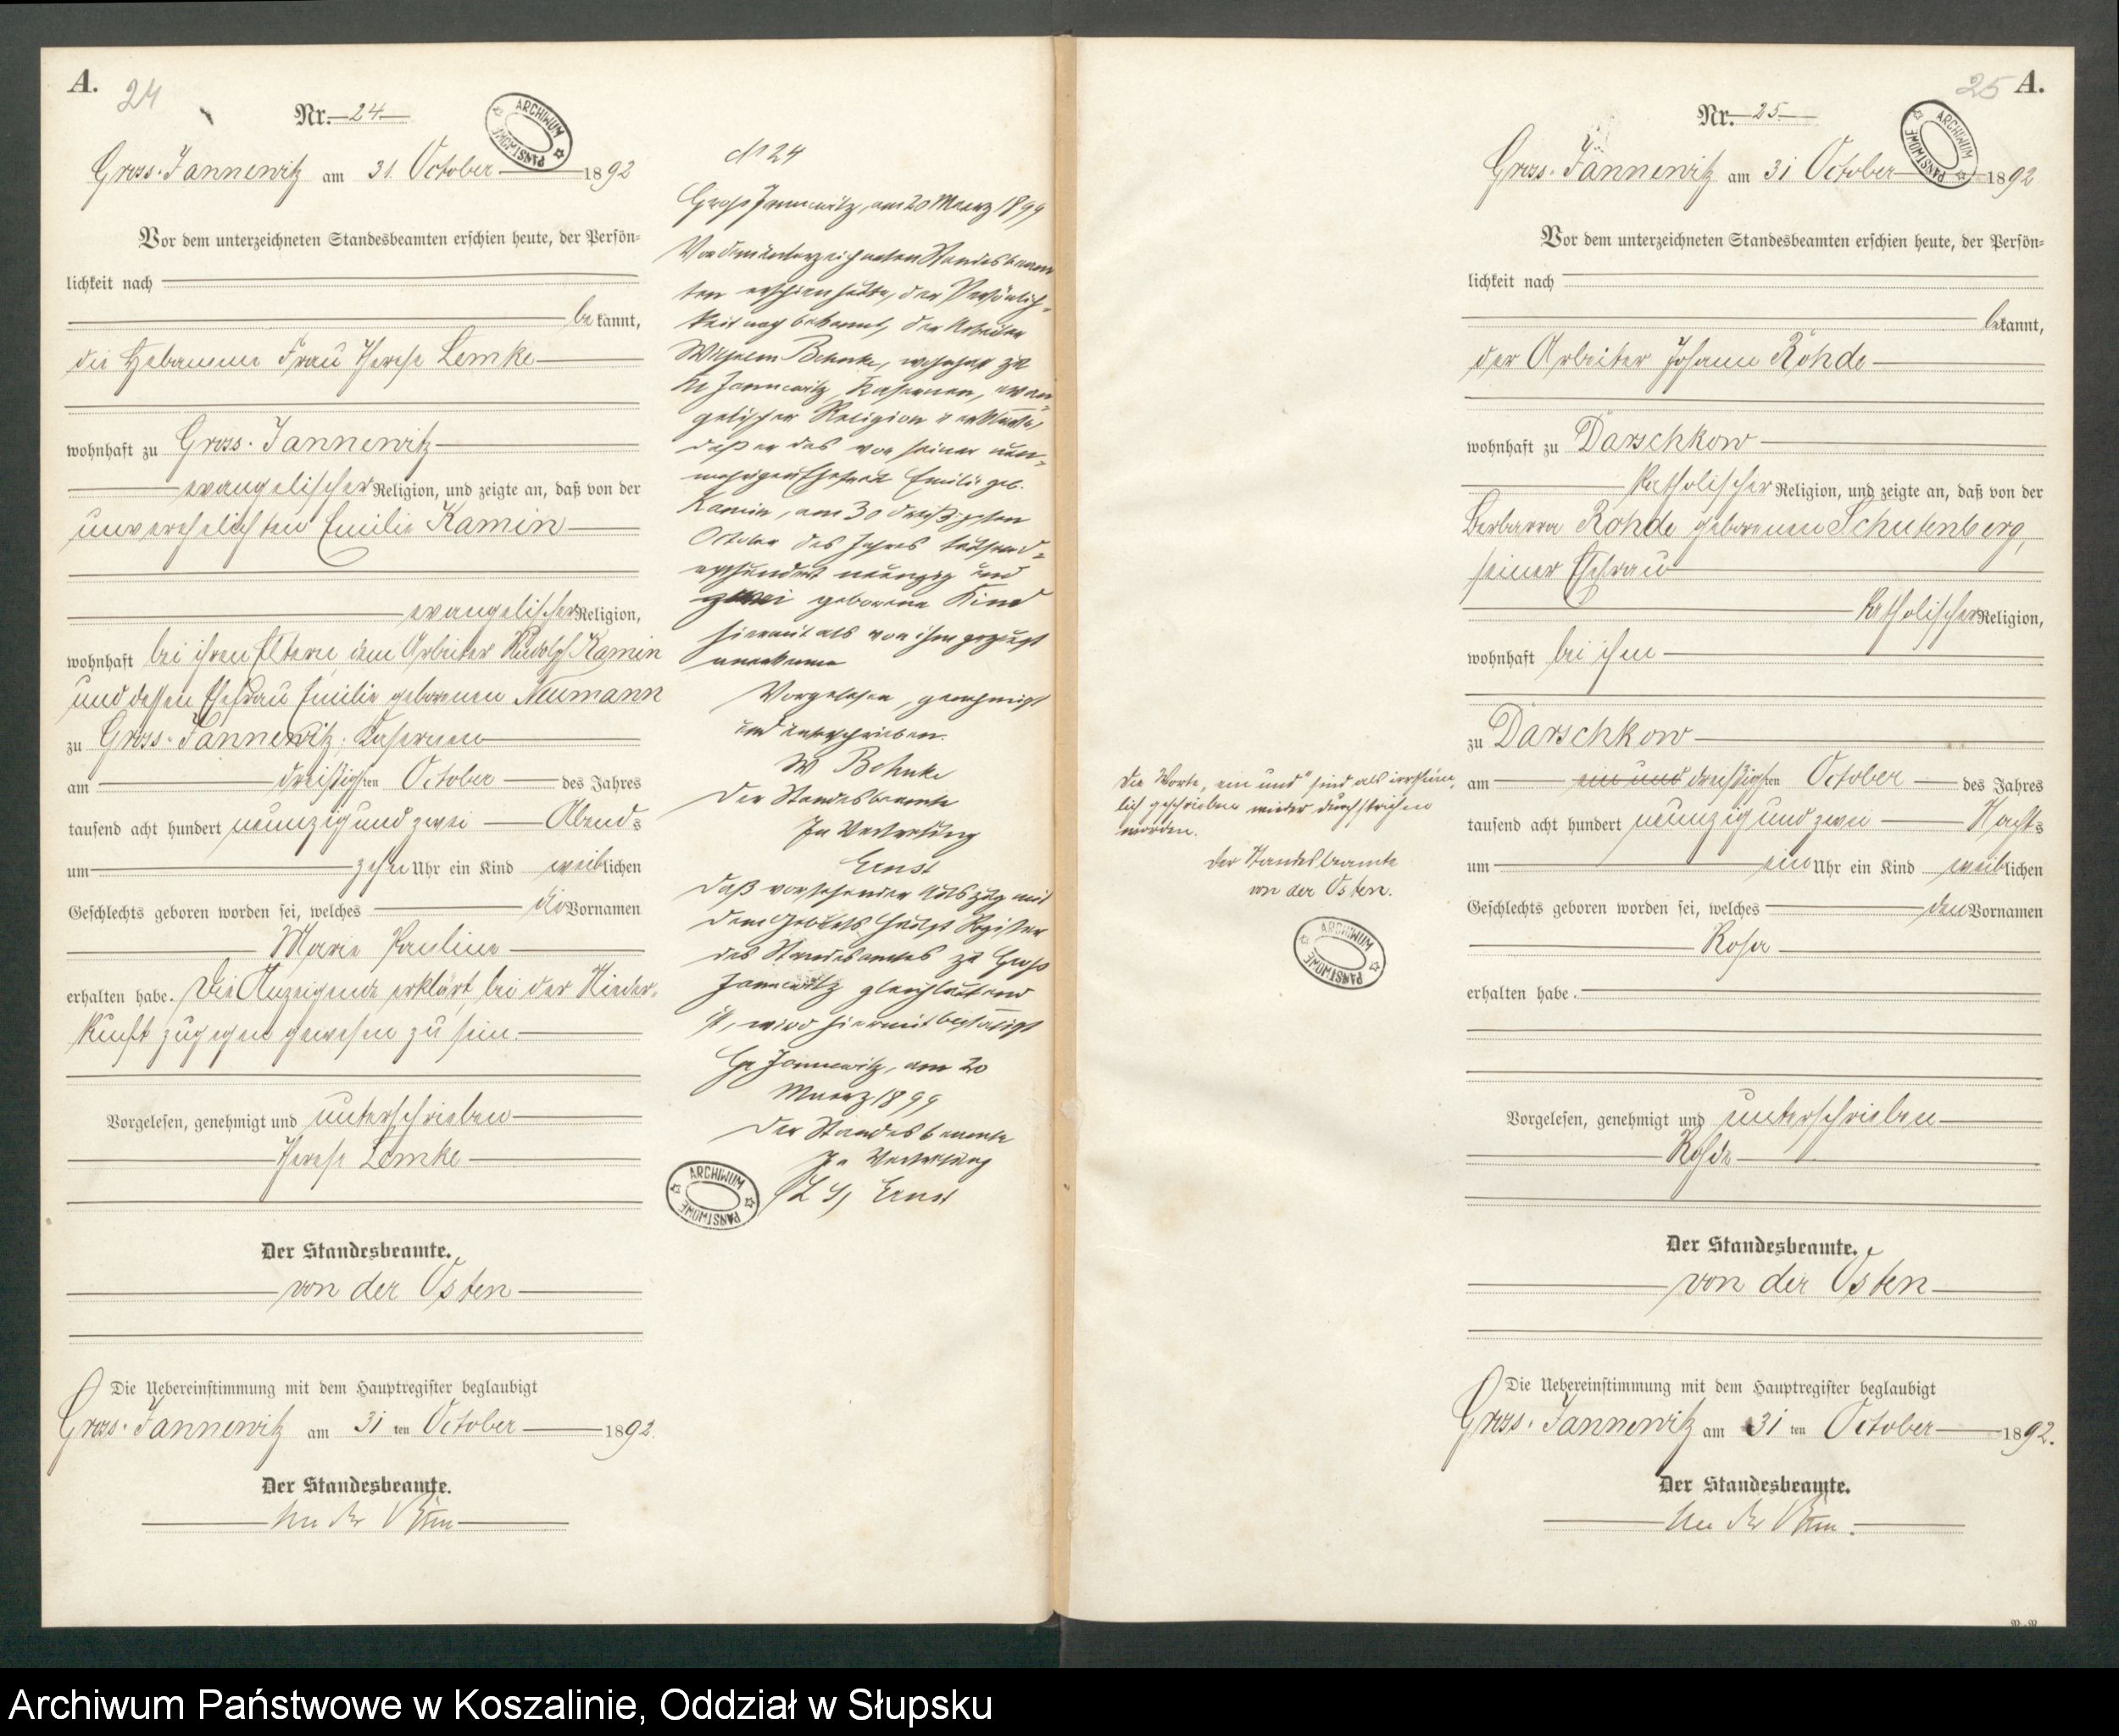 A.
24
Nr. 24
ARCHIWUM PAŃSTWOWE
Gross-Jannewitz am 31. October 1892
Vor dem unterzeichneten Standesbeamten erschien heute, der Persön-
lichkeit nach
bekannt,
die Hebamme Frau Therese Lemke
wohnhaft zu Gross-Jannewitz
evangelischer Religion, und zeigte an, daß von der
unverehelichten Emilie Kamin
evangelischer Religion,
wohnhaft bei ihren Eltern dem Arbeiter Rudolf Kamin
und dessen Ehefrau Emilie geborenen Neumann
zu Gross-Jannewitz, Kasernen
am dreißigsten October des Jahres
tausend acht hundert neunzig und zwei Abends
um zehn Uhr ein Kind weiblichen
Geschlechts geboren worden sei, welches die Vornamen
Marie Pauline
erhalten habe. Die Anzeigende erklärt, bei der Nieder-
kunft zugegen gewesen zu sein.
Vorgelesen, genehmigt und unterschrieben
Therese Lemke
Der Standesbeamte.
von der Osten
Die Uebereinstimmung mit dem Hauptregister beglaubigt
Gross-Jannewitz am 31 ten October 1892.
Der Standesbeamte.
von der Osten
No 24
Groß Jannewitz, am 20 Maerz 1899
Vor dem unterzeichneten Standesbeam
ten erschien heute, der Persönlich-
keit nach bekannt, der Arbeiter
Wilhelm Behnke, wohnhaft zu
Gr Jannewitz, Kasernen, evan
gelischer Religion u erklärte,
daß er das von seiner nun-
mehrigen Ehefrau Emilie geb.
Kamin, am 30 dreißigsten
October des Jahres tausend-
achthundert neunzig und
zwei geborene Kind
hiermit als von ihm gezeugt
anerkenne
Vorgelesen, genehmigt
und unterschrieben.
W Behnke
Der Standesbeamte
In Vertretung
Ernst
Daß vorstehender Auszug mit
dem Geburts Haupt Register
des Standesamtes zu Groß
Jannewitz gleichlautend
ist, wird hiermit bestätigt
Gr Jannewitz, am 20
Maerz 1899
Der Standesbeamte
In Vertretung
(L S) Ernst
ARCHIWUM PAŃSTWOWE
25
A.
Nr. 25
ARCHIWUM PAŃSTWOWE
Gross-Jannewitz am 31 October 1892
Vor dem unterzeichneten Standesbeamten erschien heute, der Persön-
lichkeit nach
bekannt,
der Arbeiter Johann Rohde
wohnhaft zu Darschkow
katholischer Religion, und zeigte an, daß von der
Barbara Rohde geborenen Schutenberg,
seiner Ehefrau
katholischer Religion,
wohnhaft bei ihm
zu Darschkow
am ein und dreißigsten October des Jahres
tausend acht hundert neunzig und zwei Nachts
um ein Uhr ein Kind weiblichen
Geschlechts geboren worden sei, welches den Vornamen
Rosa
erhalten habe.
Vorgelesen, genehmigt und unterschrieben
Rohde
Der Standesbeamte.
von der Osten
Die Uebereinstimmung mit dem Hauptregister beglaubigt
Gross-Jannewitz am 31 ten October 1892.
Der Standesbeamte.
von der Osten.
Die Worte „ein und" sind als irrthüm-
lich geschrieben wieder durchstrichen
worden.
Der Standesbeamte
von der Osten.
ARCHIWUM PAŃSTWOWE
Archiwum Państwowe w Koszalinie, Oddział w Słupsku